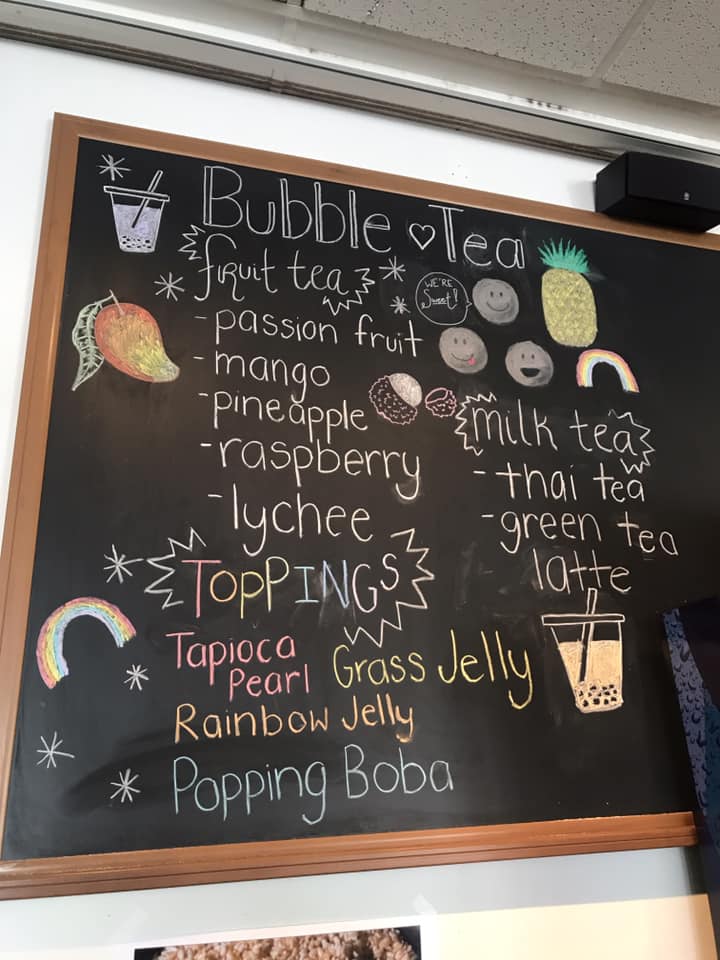 Bubble ♡ Tea
fruit tea
WE'RE
Sweet!
- passion fruit
- mango
- pineapple
- raspberry
- lychee
milk tea
- thai tea
- green tea
latte
TOPPINGS
Tapioca
Pearl
Grass Jelly
Rainbow Jelly
Popping Boba